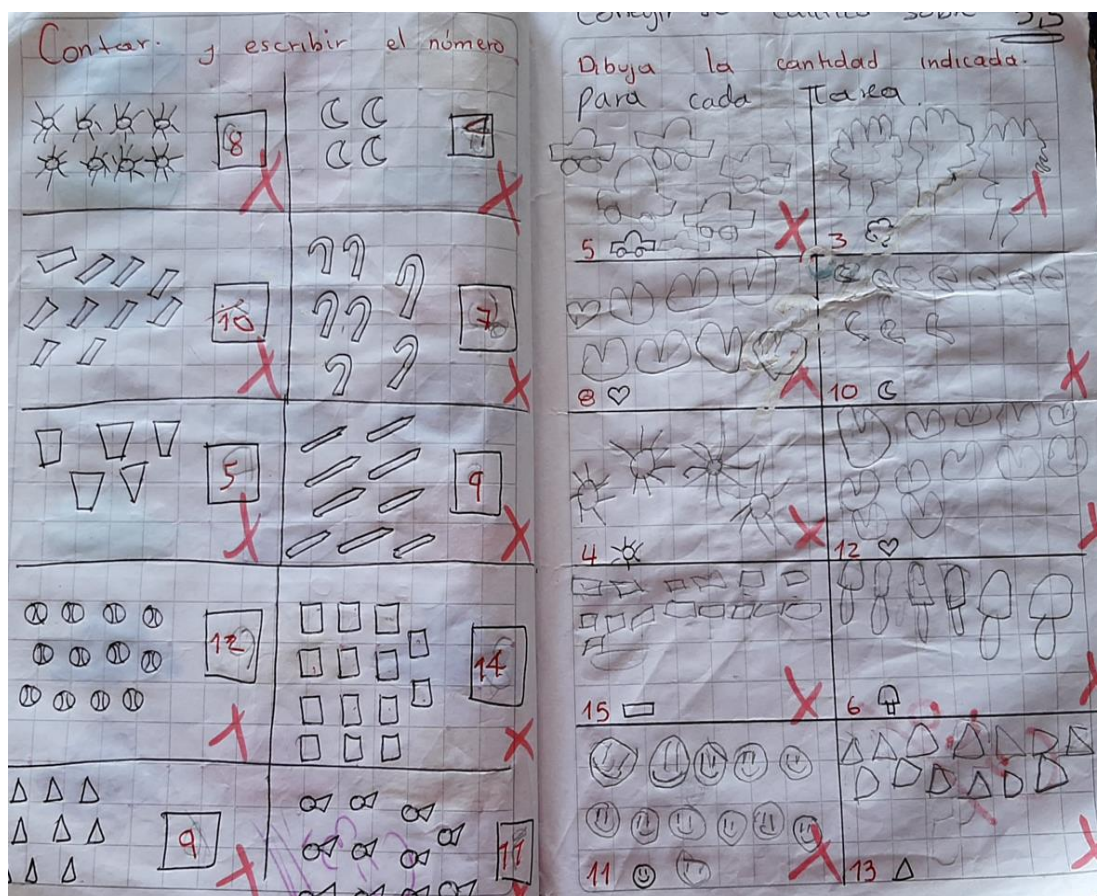 Contar y escribir el número
8
4
10
7
5
9
12
14
9
11
5,5
Dibuja la cantidad indicada.
para cada Tarea.
5
3
8
10
4
12
15
6
11
13